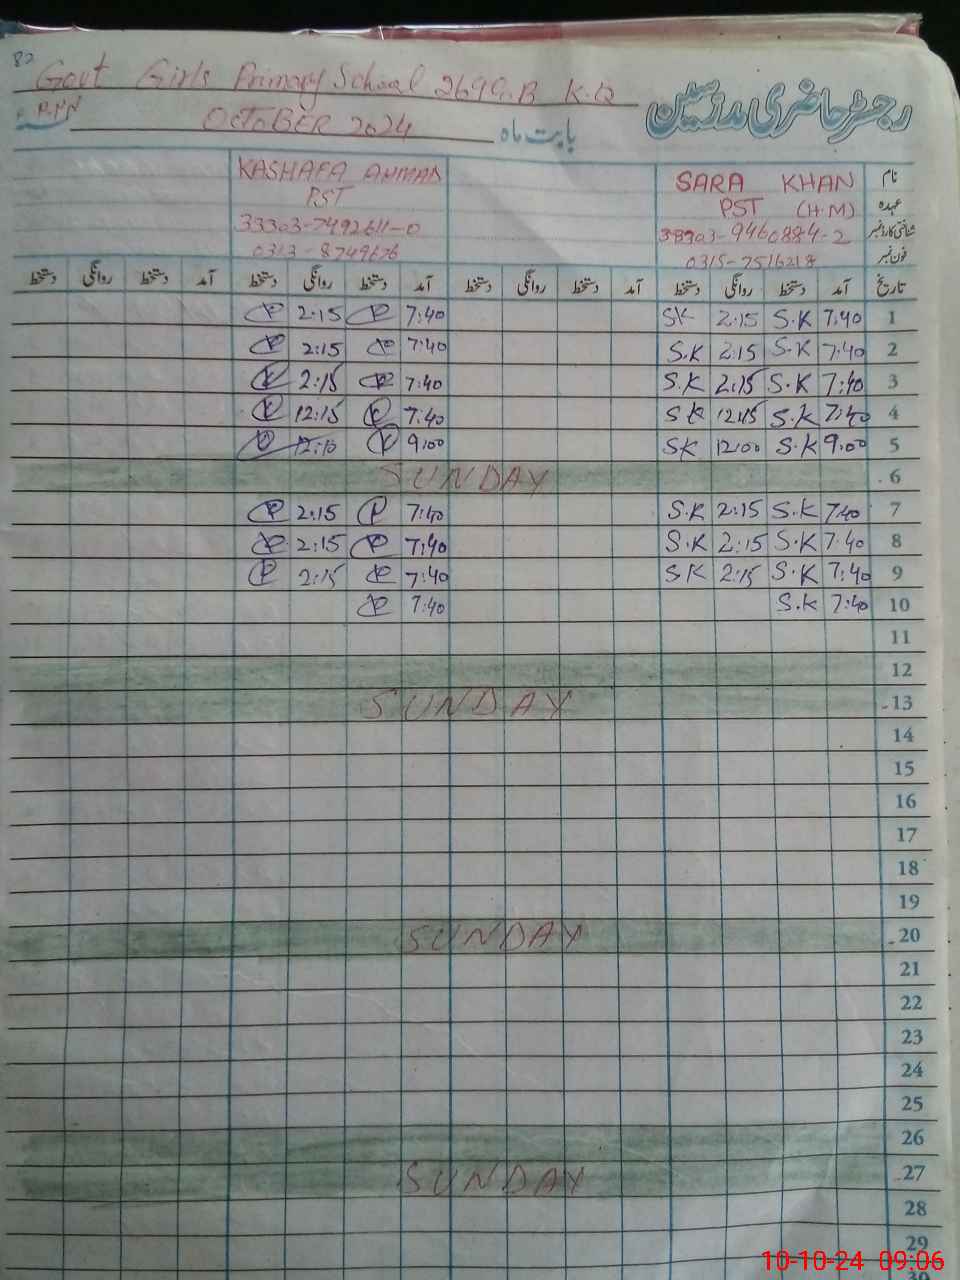 82
Govt Girls Primary School 269 G.B K.Q
رجسٹر حاضری مدرسین
OCTOBER 2024 بابت ماہ
KASHAFA SARA KHAN نام
PST PST (H.M) عہدہ
33303-7492611-0 33303-9460884-2 شناختی کارڈ نمبر
0313-8749676 0315-7516218 فون نمبر
دستخط روانگی دستخط آمد دستخط روانگی دستخط آمد دستخط روانگی دستخط آمد دستخط روانگی دستخط آمد تاریخ
2:15 7:40 SK 2:15 S.K 7:40 1
2:15 7:40 S.K 2:15 S.K 7:40 2
2:15 7:40 S.K 2:15 S.K 7:40 3
12:15 7:40 SK 12:15 S.K 7:40 4
12:10 9:00 SK 12:00 S.K 9:00 5
SUNDAY 6
2:15 7:40 S.K 2:15 S.K 7:40 7
2:15 7:40 S.K 2:15 S.K 7:40 8
2:15 7:40 SK 2:15 S.K 7:40 9
7:40 S.K 7:40 10
11
12
SUNDAY 13
14
15
16
17
18
19
SUNDAY 20
21
22
23
24
25
26
SUNDAY 27
28
29
30
10-10-24 09:06